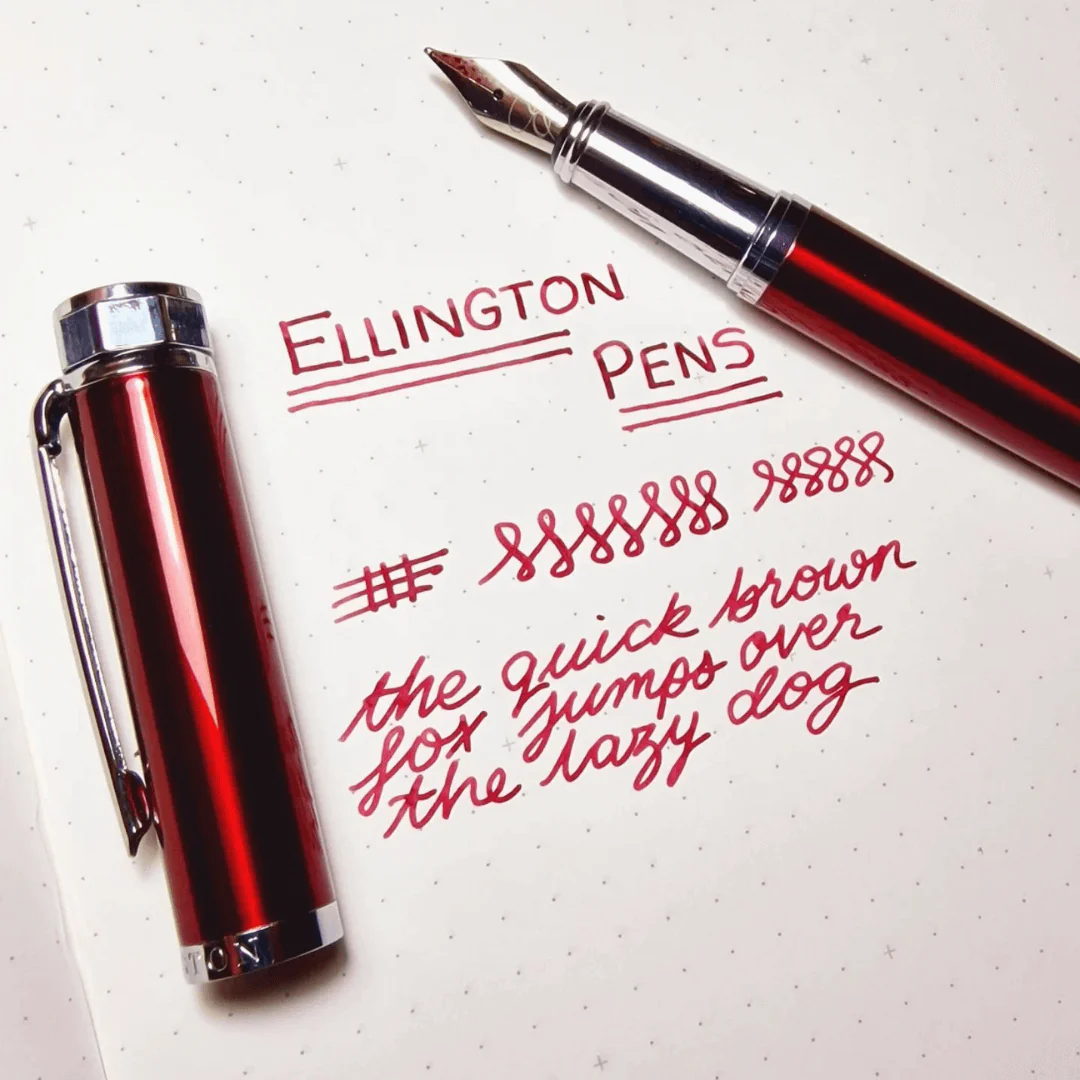 ELLINGTON
PENS
the quick brown
fox jumps over
the lazy dog
TON